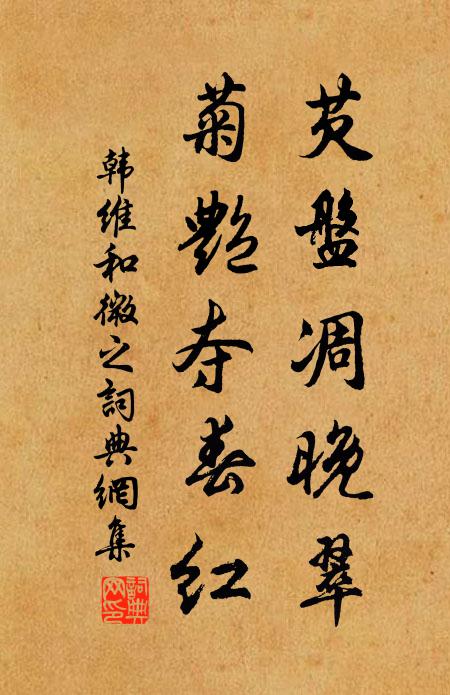 芡盤凋晚翠
菊艷夺春红
韩维和微之詞典網集
詞典网印